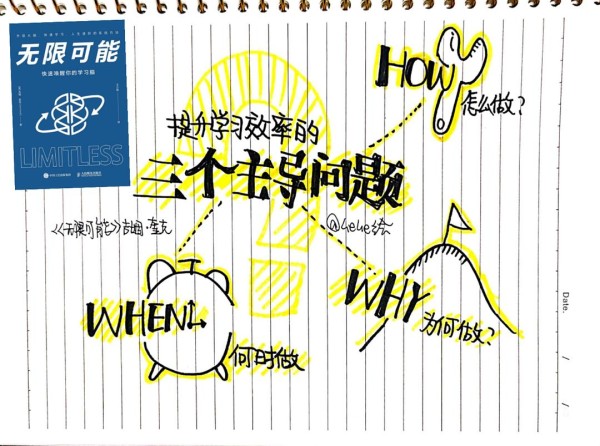 无限可能
快速唤醒你的学习脑
LIMITLESS
HOW
怎么做?
提升学习效率的
三个主导问题
《无限可能》吉姆·奎克
WHEN
何时做
WHY
为何做?
Date.